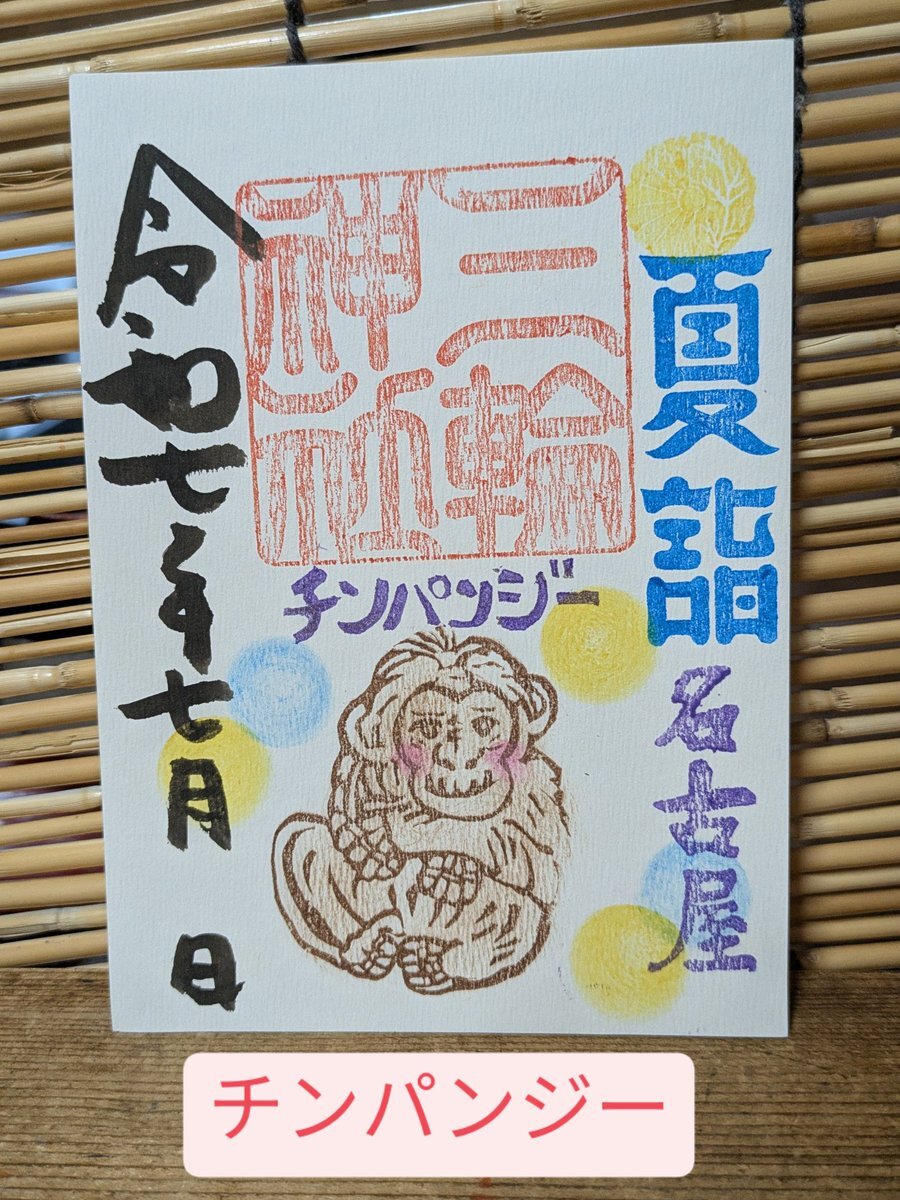 夏詣
名古屋
三輪
神社
チンパンジー
令和七年七月　日
チンパンジー